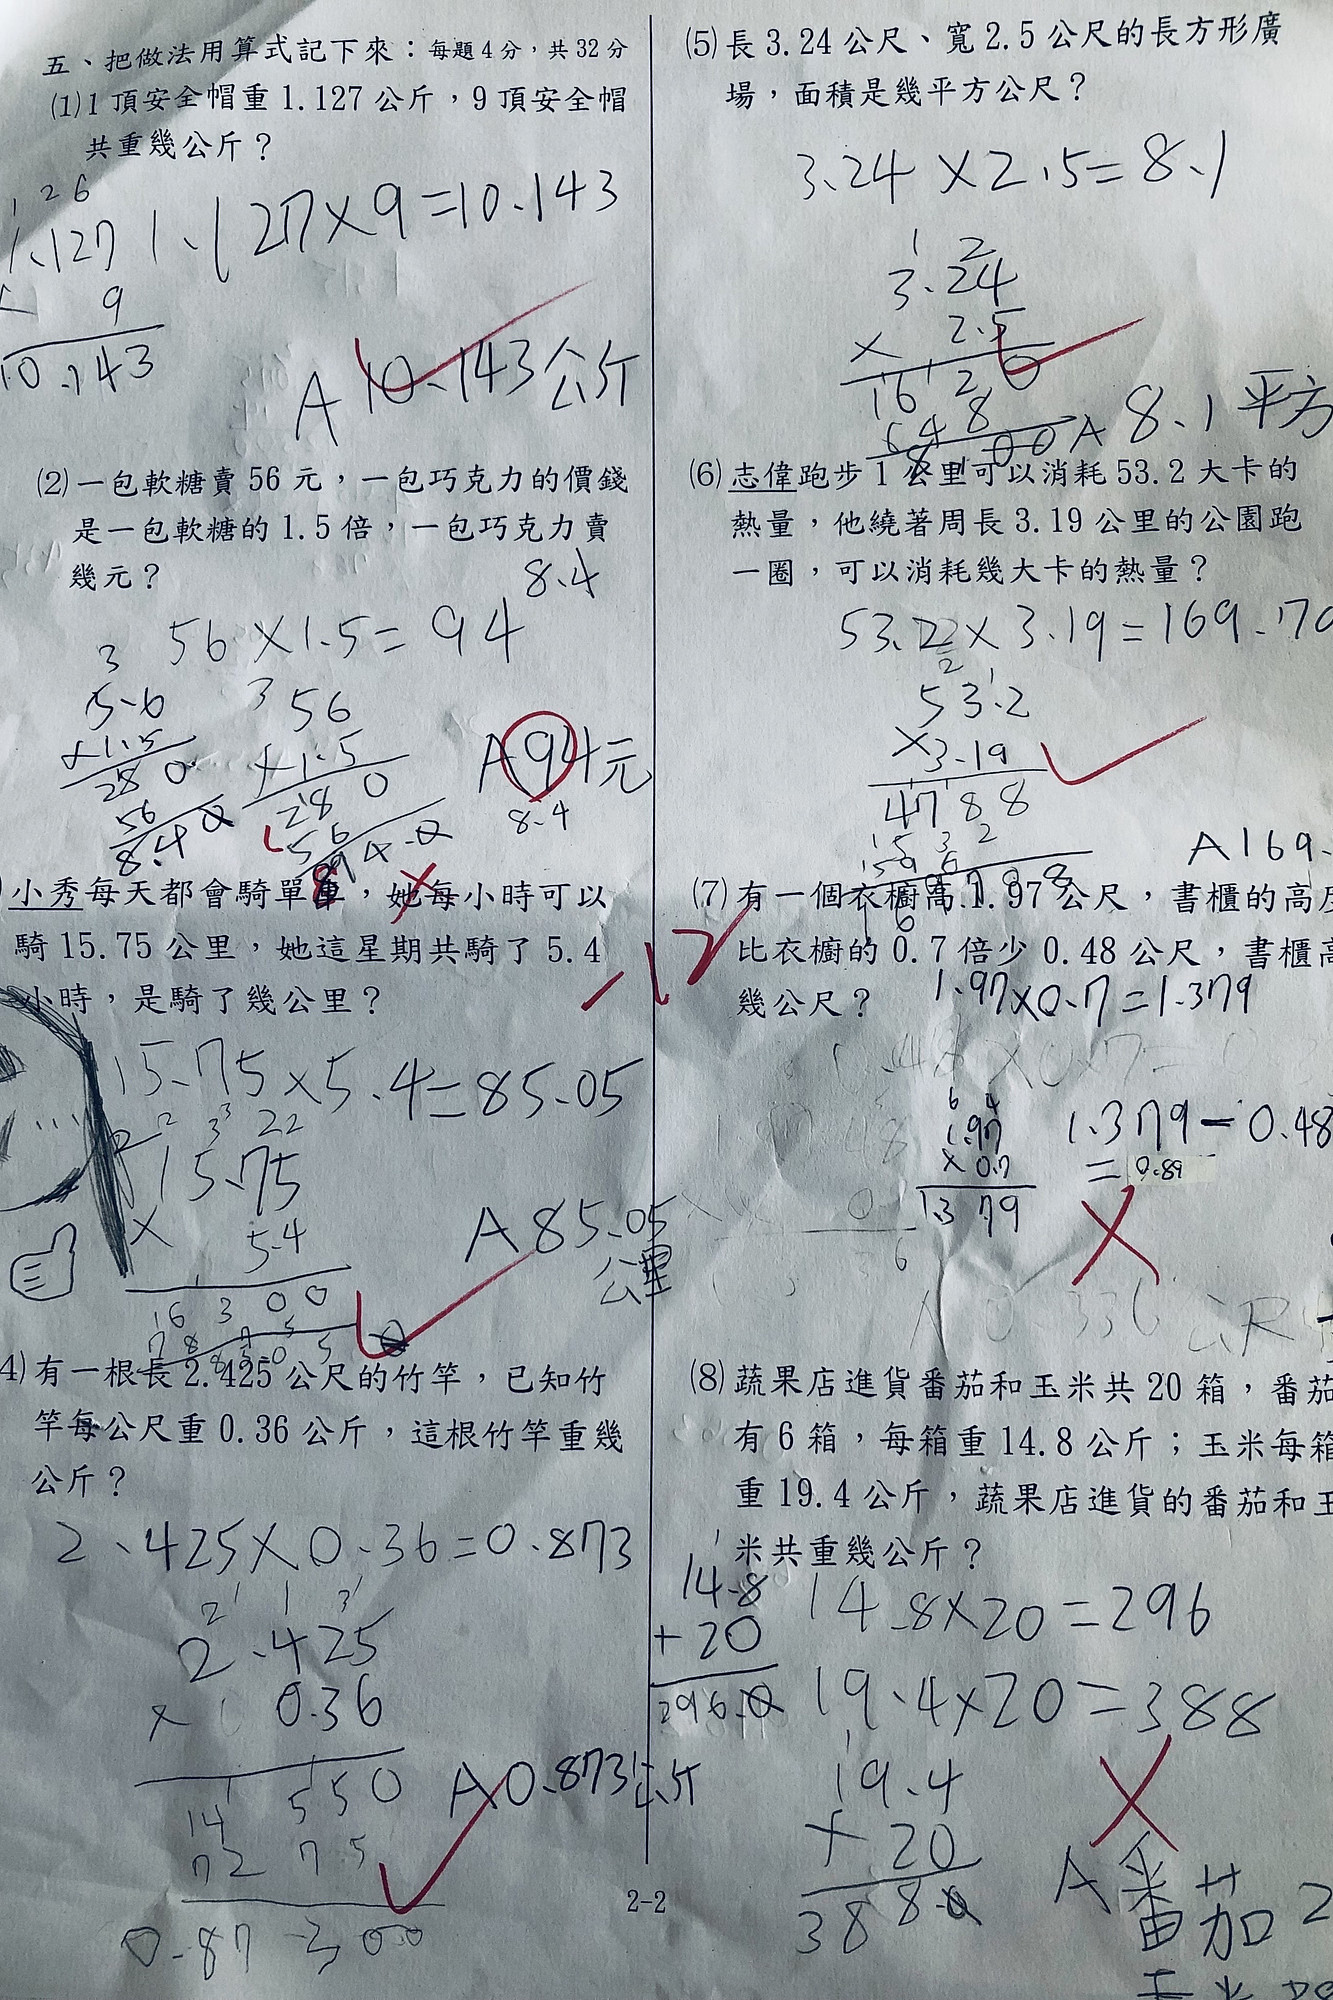 五、把做法用算式記下來：每題4分，共32分
(1)1頂安全帽重1.127公斤，9頂安全帽
共重幾公斤？
1.127×9=10.143
1 2 6
1.127
9
10.143
A 10.143公斤
(2)一包軟糖賣56元，一包巧克力的價錢
是一包軟糖的1.5倍，一包巧克力賣
幾元？
8.4
56×1.5=94
3
5.6
×1.5
28 0
56
8.4 0
3 56
×1.5
28 0
56
A 94元
8.4
小秀每天都會騎單車，她每小時可以
騎15.75公里，她這星期共騎了5.4
小時，是騎了幾公里？
15.75×5.4=85.05
15.75
× 5.4
A 85.05
公里
4)有一根長2.425公尺的竹竿，已知竹
竿每公尺重0.36公斤，這根竹竿重幾
公斤？
2.425×0.36=0.873
2.425
× 0.36
14 550
72 75
0.87 300
A 0.873公斤
(5)長3.24公尺、寬2.5公尺的長方形廣
場，面積是幾平方公尺？
3.24×2.5=8.1
1 2
3.24
× 2.5
16 2 0
64 8
A 8.1平方
(6)志偉跑步1公里可以消耗53.2大卡的
熱量，他繞著周長3.19公里的公園跑
一圈，可以消耗幾大卡的熱量？
53.2×3.19=169.70
53.2
×3.19
4788
532
A169.
-12
(7)有一個衣櫥高1.97公尺，書櫃的高度
比衣櫥的0.7倍少0.48公尺，書櫃高
幾公尺？
1.97×0.7=1.379
6 4
1.97
×0.7
1.379
1.379-0.48
=0.89
(8)蔬果店進貨番茄和玉米共20箱，番茄
有6箱，每箱重14.8公斤；玉米每箱
重19.4公斤，蔬果店進貨的番茄和玉
米共重幾公斤？
14.8×20=296
14.8
+20
296.0
19.4×20=388
19.4
+ 20
388.0
A 番茄 2
玉米
2-2